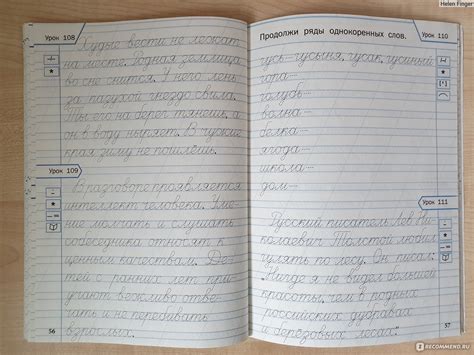 Helen Finger
Урок 108
Худые вести не лежат
на месте. Родная землица
во сне снится. У него лень
за пазухой гнездо свила.
Ты его на берег тянешь, а
он в воду ныряет. В чужие
края зиму не пошлёшь.
Урок 109
В разговоре проявляется
интеллект человека. Уме-
ние молчать и слушать
собеседника относят к
ценным качествам. Де-
тей с ранних лет при-
учают вежливо отве-
чать и не перебивать
взрослых.
56
Урок 110
Продолжи ряды однокоренных слов.
гусь—гусыня, гусак, гусиный
гора—
голубь—
волна—
белка—
ягода—
школа—
дом—
Урок 111
Русский писатель Лев Ни-
колаевич Толстой любил
гулять по лесу. Он писал:
„Нигде я не видел большей
красоты, чем в родных
российских дубравах
и берёзовых лесах."
57
IRECOMMEND.RU